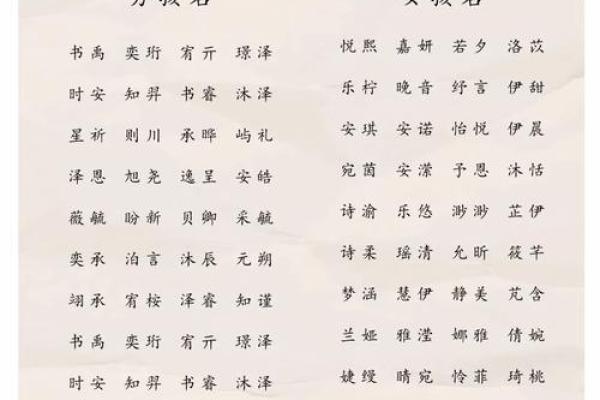 男孩名
书禹 奕珩 宥亓 璟泽
时安 知羿 书睿 沐泽
星祈 则川 承晔 屿礼
泽恩 旭尧 逸呈 安皓
薇毓 盼新 贝卿 采毓
奕承 泊言 沐辰 元朔
翊承 宥桉 泽睿 知谨
书禹 奕珩 宥亓 璟泽
时安 知羿 书睿 沐泽
女孩名
悦熙 嘉妍 若夕 洛苡
乐柠 晚音 纾言 伊甜
安琪 安诺 怡悦 伊晨
宛茵 安潆 予恩 沐恬
诗渝 乐悠 渺渺 芷伊
诗柔 瑶清 允昕 筱芊
梦涵 慧伊 静美 芃含
兰娅 雅滢 娜雅 倩婉
婕缦 晴宛 怜菲 琦桃